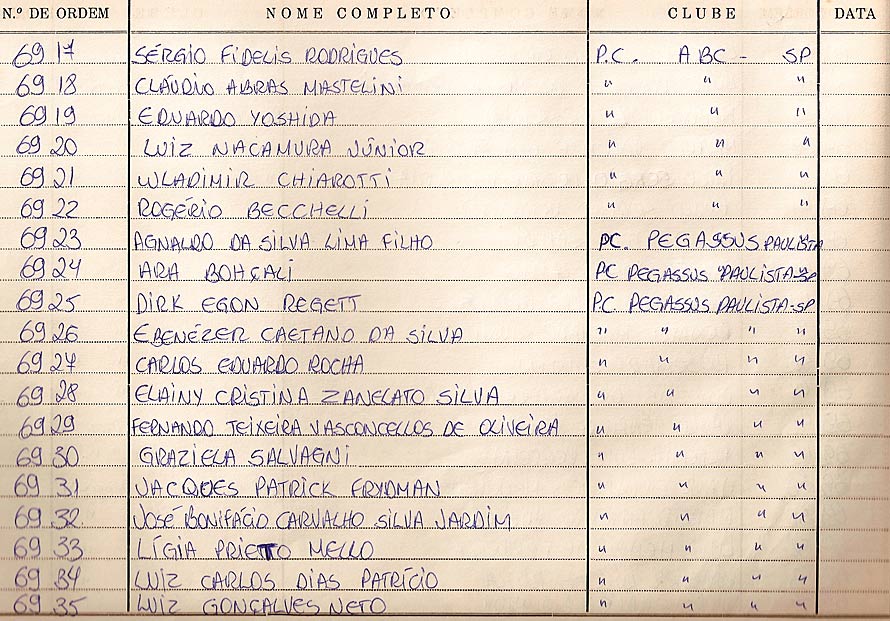 N.º DE ORDEM NOME COMPLETO CLUBE DATA
69 17 SÉRGIO FIDELIS RODRIGUES P.C. ABC - SP
69 18 CLÁUDIO ABRAS MASTELINI " " "
69 19 EDUARDO YOSHIDA " " "
69 20 LUIZ NACAMURA JÚNIOR " " "
69 21 WLADIMIR CHIAROTTI " " "
69 22 ROGÉRIO BECCHELLI " " "
69 23 AGNALDO DA SILVA LIMA FILHO PC. PEGASSUS PAULISTA
69 24 ARA BOHÇALI PC PEGASSUS PAULISTA-SP
69 25 DIRK EGON REGETT P.C. PEGASSUS PAULISTA-SP
69 26 EBENÉZER CAETANO DA SILVA " " " "
69 27 CARLOS EDUARDO ROCHA " " " "
69 28 ELAINY CRISTINA ZANELATO SILVA " " " "
69 29 FERNANDO TEIXEIRA VASCONCELLOS DE OLIVEIRA " " " "
69 30 GRAZIELA SALVAGNI " " " "
69 31 JACQUES PATRICK FRYDMAN " " " "
69 32 JOSÉ BONIFÁCIO CARVALHO SILVA JARDIM " " " "
69 33 LÍGIA PRIETTO MELLO " " " "
69 34 LUIZ CARLOS DIAS PATRÍCIO " " " "
69 35 LUIZ GONÇALVES NETO " " " "